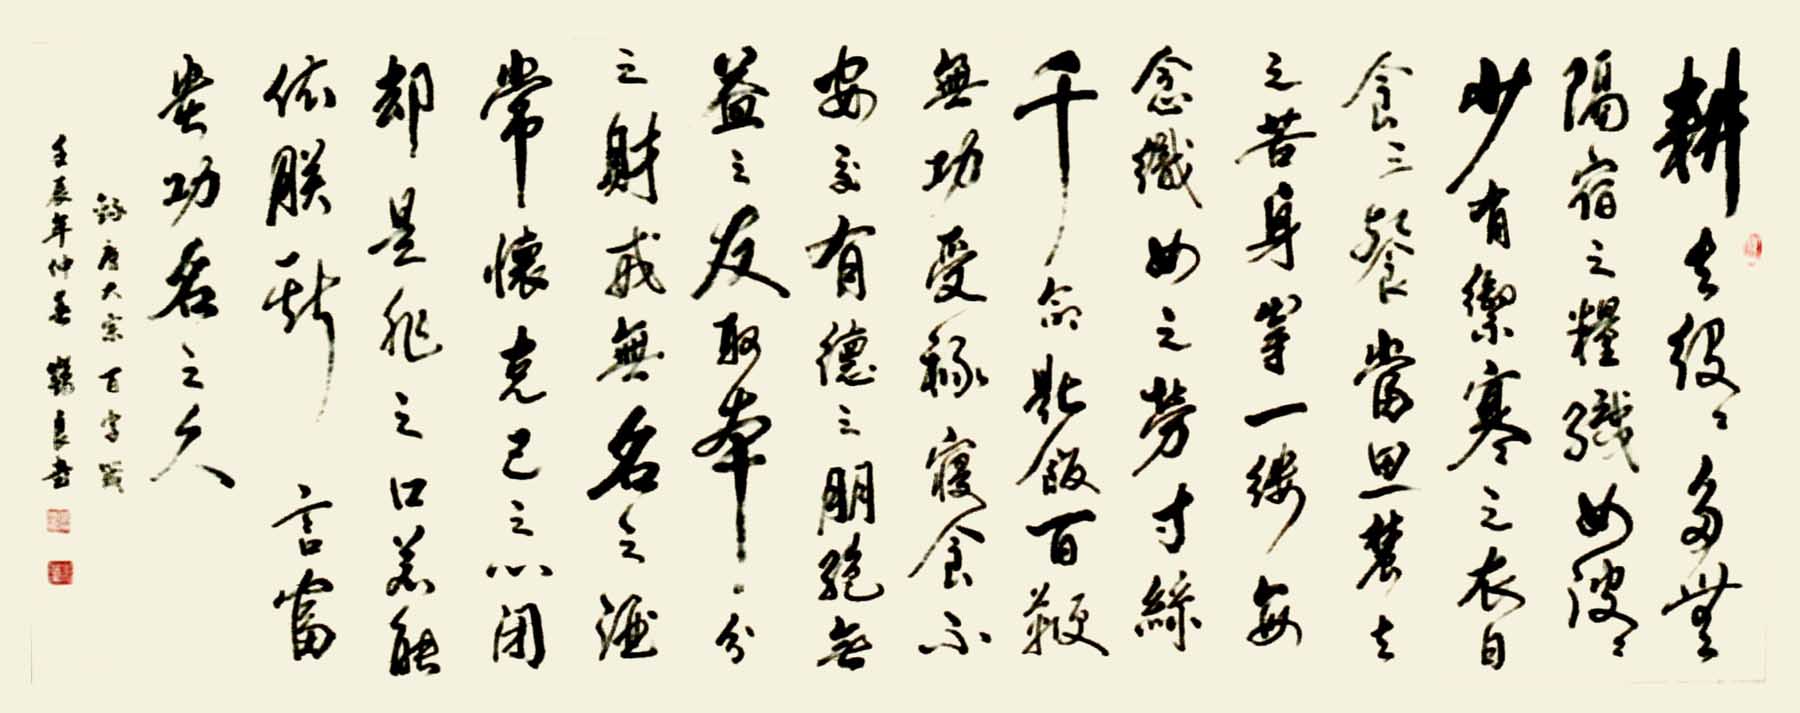 耕夫役〻多無
隔宿之糧織女波〻
少有禦寒之衣日
食三餐當思農夫
之苦身穿一縷每
念織女之勞寸絲
千命匙飯百鞭
無功受祿寢食不
安交有德之朋絕無
益之友取本分
之財戒無名之酒
常懷克己之心闭
却是非之口若能
依朕斯言富
貴功名之人
錄唐太宗百字箴
壬辰年仲春良書